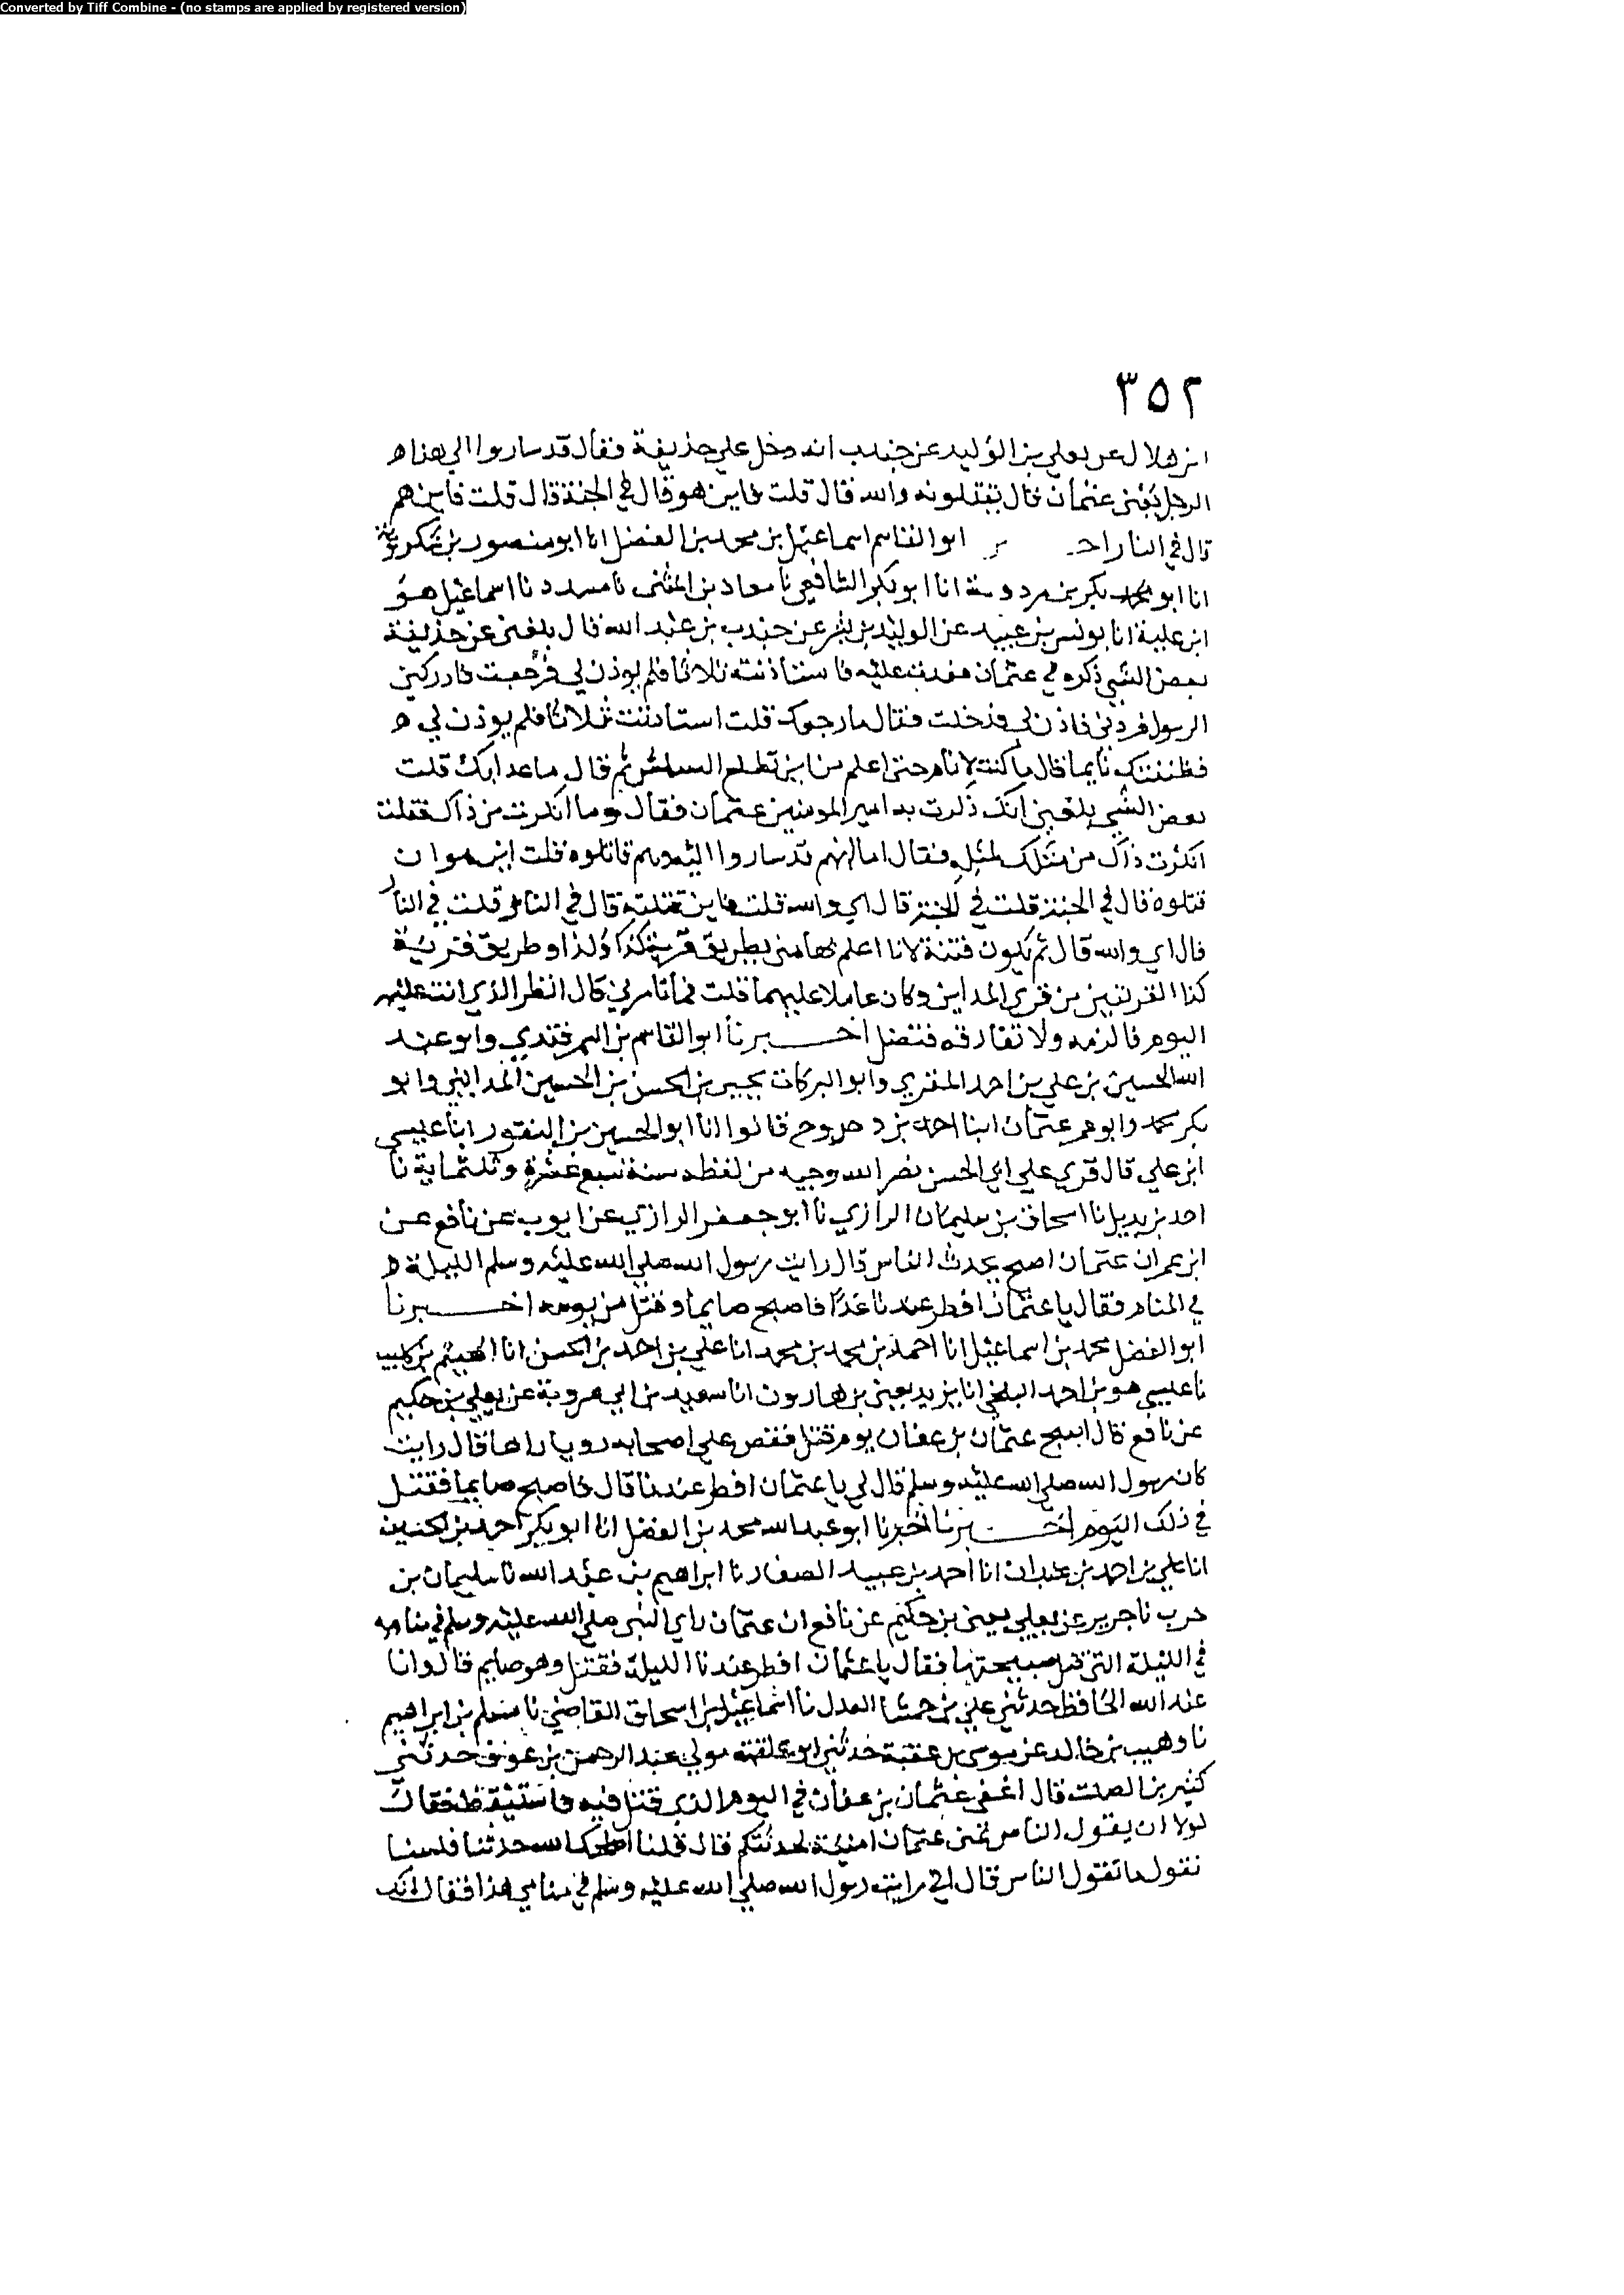 Converted by Tiff Combine - (no stamps are applied by registered version)
٣٥٢
ابن هلال عن يعلي بن الوليد عن جندب انه دخل علي حذيفة فقال قد ساروا الي هذا
الرجل يعني عثمان قال يقتلونه والله قال قلت فاين هو قال في الجنة قال قلت فاين هم
قال في النار ابو القاسم اسماعيل بن محمد بن الفضل انا ابو منصور بن شكرويه
انا ابو بكر بن مردوية انا ابو بكر الشافعي نا معاد بن المثنى نا مسدد نا اسماعيل هو
ابن علية انا يونس بن عبيد عن الوليد بن بشر عن جندب بن عبد الله قال بلغني عن حذيفة
بعض الشي ذكره في عثمان فغدوت عليه فاستاذنته ثلاثا فلم يوذن لي فرجعت فادركني
الرسول فردني فاذن لي فدخلت فقال ما رجوعك قلت استاذنت ثلاثا فلم يوذن لي
فظننتك نايما قال ما كنت لانام حتى اعلم من اين تطلع الشمس ثم قال ما غدا بك قلت
بعض الشي بلغني انك ذكرت به امير المومنين عثمان فقال وما انكرت من ذاك فقلت
انكرت ذاك من مثلك لمثله فقال اما انهم قد ساروا اليه وهم قاتلوه قلت اين هو ان
قتلوه قال في الجنة قلت في الجنة قال اي والله قلت فاين قتلته قال في النار قلت في النار
قال اي والله قال ثم تكون فتنة لانا اعلم بها مني بطريق قرية كذا وكذا وطريق قرية
كذا القريتين من قري المداين وكان عاملا عليهما قلت فما تامرني قال انظر الذي انت عليه
اليوم فالزمه ولا تفارقه فتضل اخبرنا ابو القاسم بن السمرقندي وابو عبد
الله الحسين بن علي بن احمد المقري وابو البركات يحيي بن الحسن بن الحسين المدايني وابو
بكر محمد وابو عمر عثمان ابنا احمد بن دحروج قالوا انا ابو الحسين بن النقور ابنا عيسي
ابن علي قال قري علي ابي الحسن نصر الله وجيه من لفظه سنة سبع عشرة وثلثماية نا
احمد بن بديل نا اسحاق بن سليمان الرازي نا ابو جعفر الرازي عن ايوب عن نافع عن
ابن عمر ان عثمان اصبح يحدث الناس قال رايت رسول الله صلي الله عليه وسلم الليلة
في المنام فقال يا عثمان افطر عندنا غدا فاصبح صايما وقتل من يومه اخبرنا
ابو الفضل محمد بن اسماعيل انا احمد بن محمد بن محمد انا علي بن احمد بن الحسن انا الهيثم بن كليب
نا عيسي هو بن احمد البلخي انا يزيد يعني بن هارون انا سعيد بن ابي عروبة عن يعلي بن حكيم
عن نافع قال اصبح عثمان بن عفان يوم قتل فقص علي اصحابه رويا راها قال رايت
كان رسول الله صلي الله عليه وسلم قال لي يا عثمان افطر عندنا قال فاصبح صايما فقتل
في ذلك اليوم اخبرنا اخبرنا ابو عبد الله محمد بن الفضل انا ابو بكر احمد بن الحسين
انا علي بن احمد بن عبدان انا احمد بن عبيد الصفار نا ابراهيم بن عبد الله نا سليمان بن
حرب نا جرير عن يعلي يعني بن حكيم عن نافع ان عثمان راي النبي صلي الله عليه وسلم في منامه
في الليلة التي قتل صبيحتها فقال يا عثمان افطر عندنا الليلة فقتل وهو صايم قال وانا
عبد الله الحافظ حدثني علي بن حمشا العدل نا اسماعيل بن اسحاق القاضي نا مسلم بن ابراهيم
نا وهيب بن خالد عن موسي بن عقبة حدثني ابو علقمة مولي عبد الرحمن بن عوف حدثني
كثير بن الصلت قال اغفي عثمان بن عفان في اليوم الذي قتل فيه فاستيقظ فقال
لولا ان يقول الناس تمني عثمان امنية لحدثتكم قال قلنا اصلحك الله حدثنا فلسنا
نقول ما تقول الناس قال اني رايت رسول الله صلي الله عليه وسلم في منامي هذا فقال انك